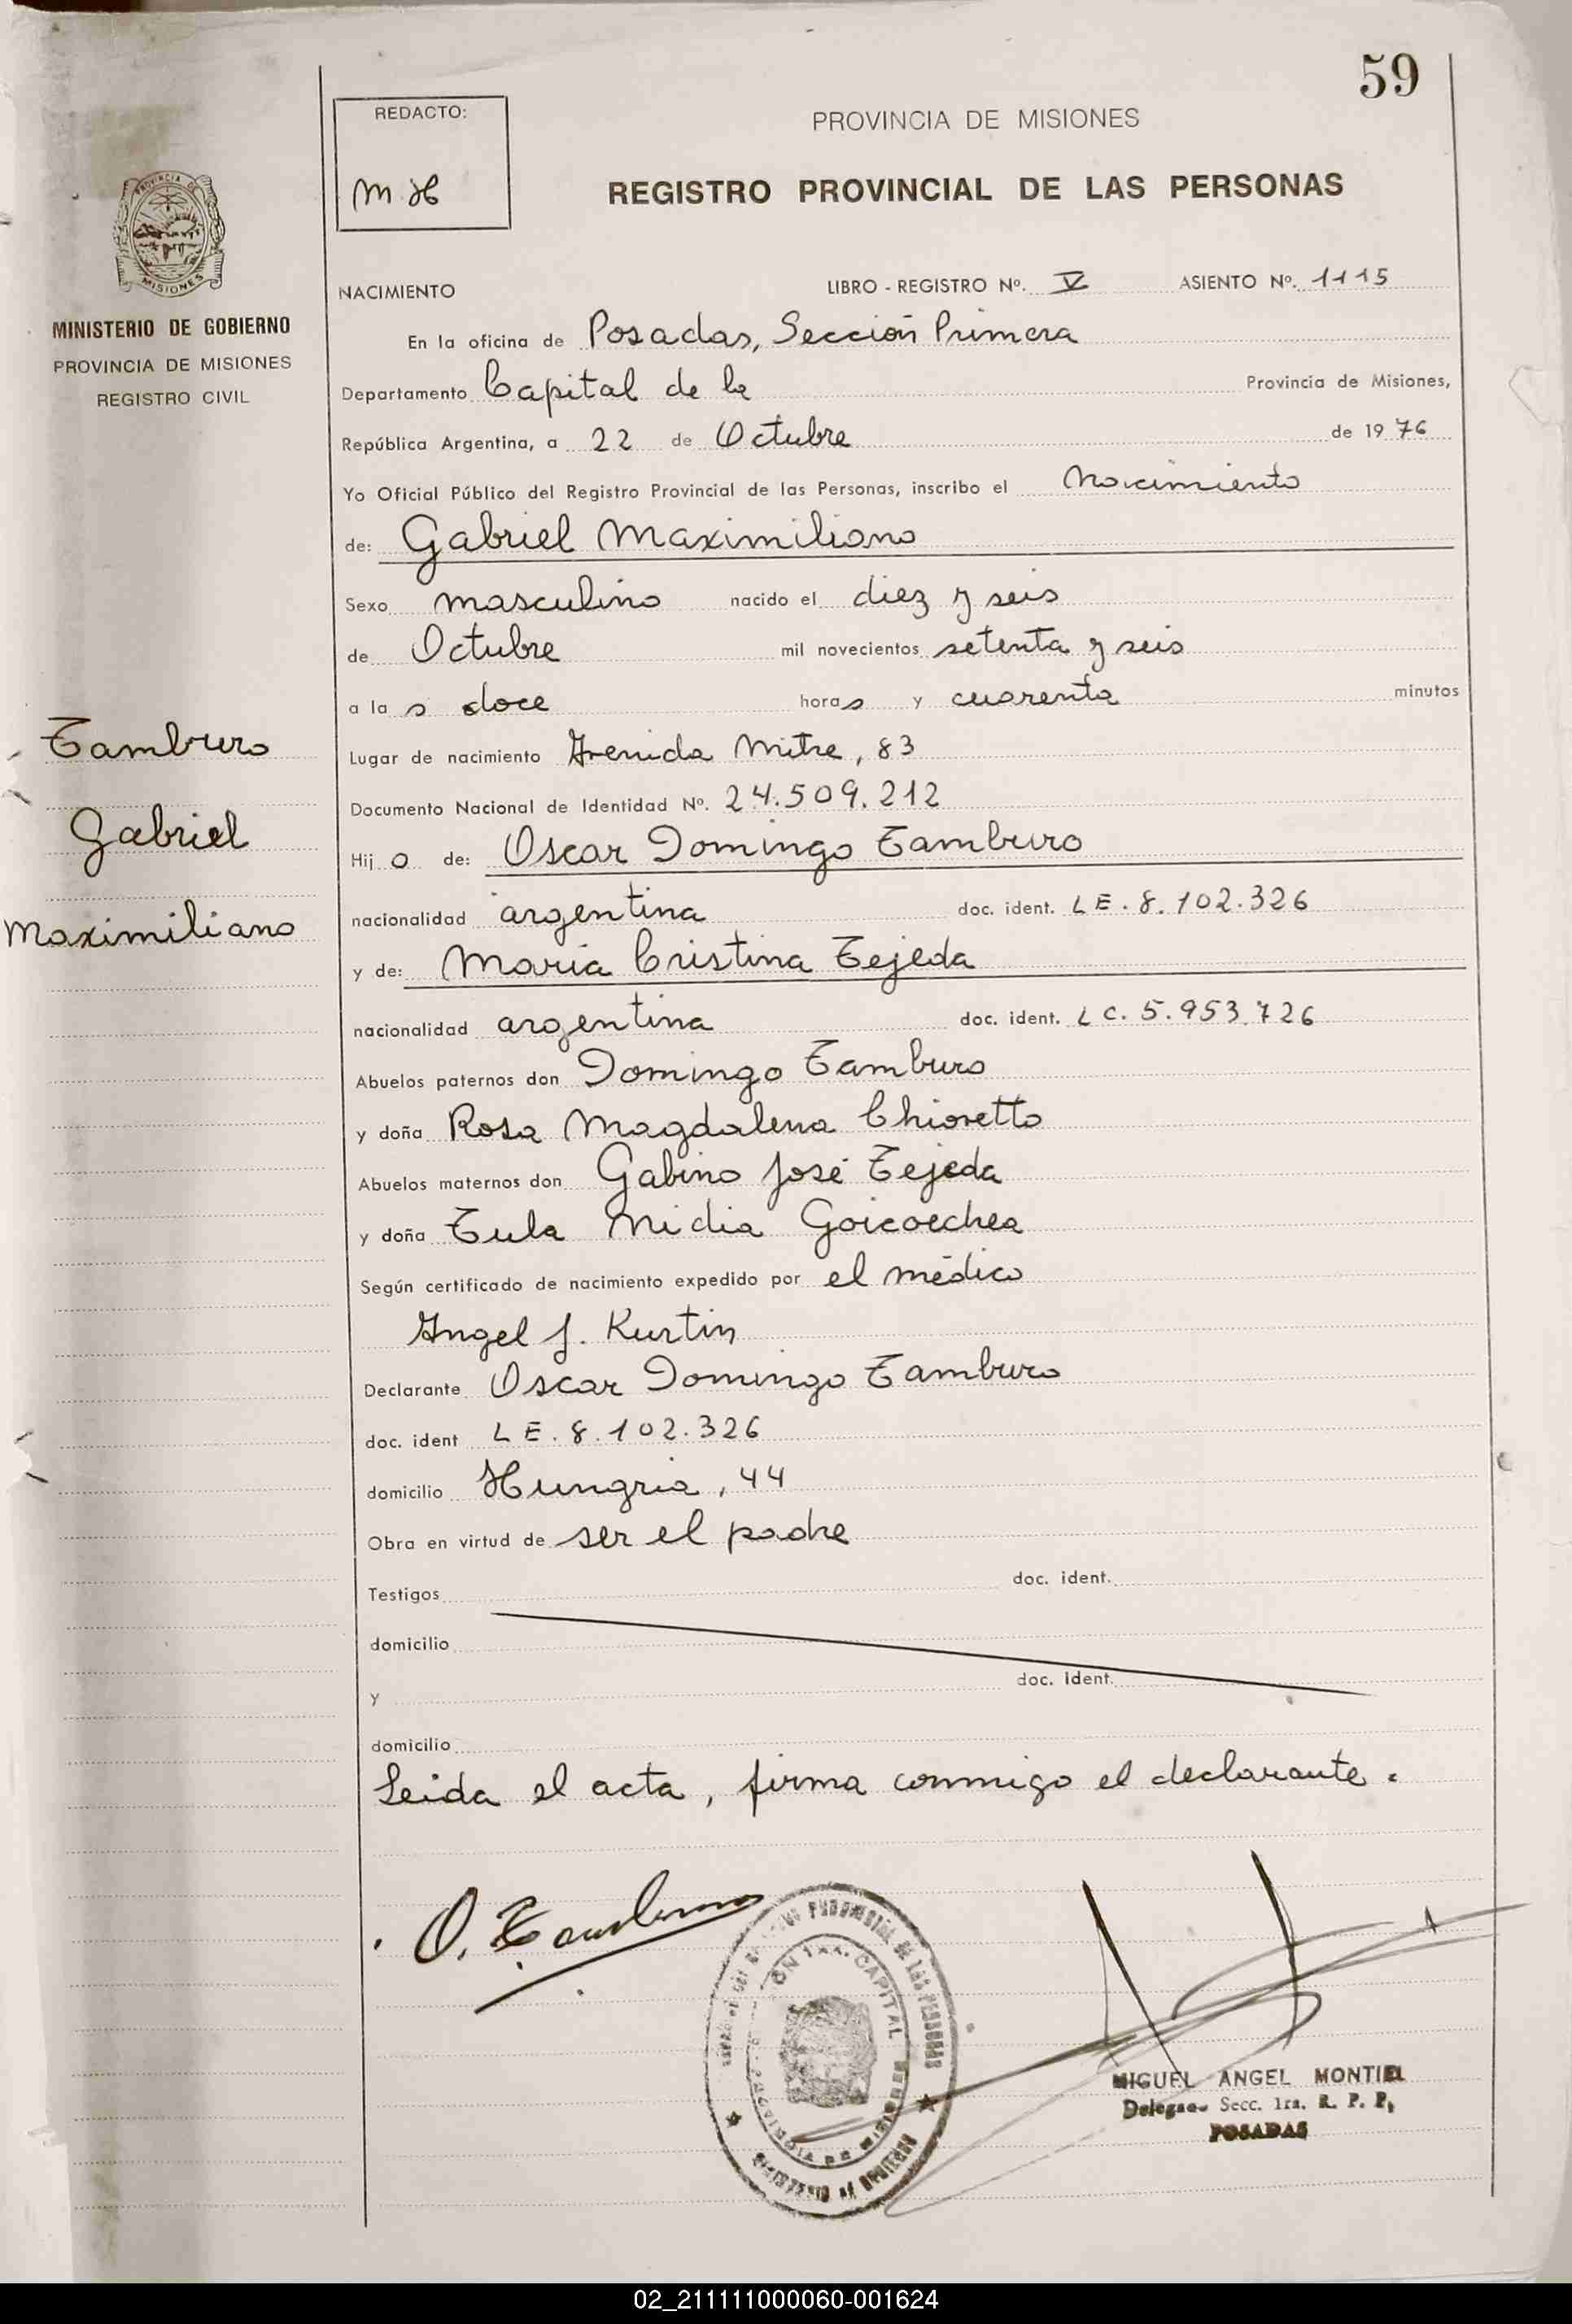 59
REDACTO:
M H
PROVINCIA DE MISIONES
REGISTRO PROVINCIAL DE LAS PERSONAS
PROVINCIA DE
MISIONES
MINISTERIO DE GOBIERNO
PROVINCIA DE MISIONES
REGISTRO CIVIL
NACIMIENTO LIBRO - REGISTRO Nº. V ASIENTO Nº. 1115
En la oficina de Posadas, Sección Primera
Departamento Capital de la Provincia de Misiones,
República Argentina, a 22 de Octubre de 1976
Yo Oficial Público del Registro Provincial de las Personas, inscribo el nacimiento
de: Gabriel Maximiliano
Sexo masculino nacido el diez y seis
de Octubre mil novecientos setenta y seis
a la s doce horas y cuarenta minutos
Lugar de nacimiento Avenida Mitre, 83
Documento Nacional de Identidad Nº. 24.509.212
Tamburo
Gabriel
Maximiliano
Hijo de: Oscar Domingo Tamburo
nacionalidad argentina doc. ident. LE. 8.102.326
y de: María Cristina Tejeda
nacionalidad argentina doc. ident. LC. 5.953.726
Abuelos paternos don Domingo Tamburo
y doña Rosa Magdalena Chioretto
Abuelos maternos don Gabino José Tejeda
y doña Tula Nidia Goicoechea
Según certificado de nacimiento expedido por el médico
Angel J. Kurtin
Declarante Oscar Domingo Tamburo
doc. ident LE. 8.102.326
domicilio Hungria, 44
Obra en virtud de ser el padre
Testigos doc. ident.
domicilio
y doc. ident.
domicilio
Leida el acta, firma conmigo el declarante.
O. Tamburo
PROVINCIAL DE LAS PERSONAS
CAPITAL
PROVINCIA DE MISIONES
MINISTERIO DE GOBIERNO
MIGUEL ANGEL MONTIEL
Delegado Secc. 1ra. R. P. P.
POSADAS
02_211111000060-001624